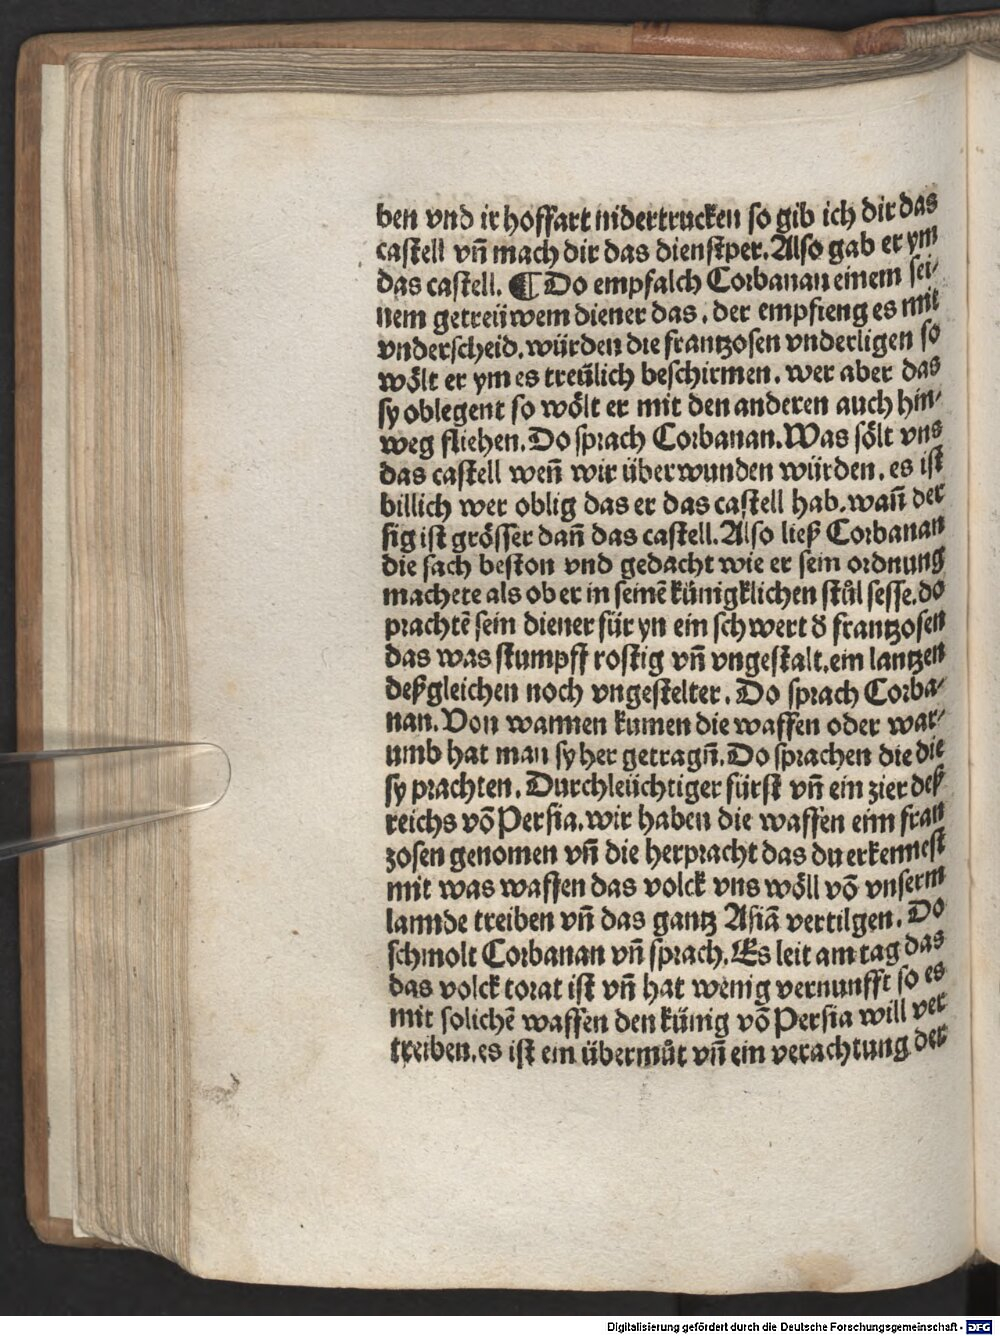 ben vnd ir hoffart nidertrucken so gib ich dir das
castell vn̄ mach dir das dienstper. Also gab er ym
das castell. ¶ Do empfalch Corbanan einem sei⸗
nem getreüwem diener das. der empfieng es mit
vnderscheid. würden die frantzosen vnderligen so
wölt er ym es treülich beschirmen. wer aber das
sy oblegent so wölt er mit den anderen auch hin⸗
weg fliehen. Do sprach Corbanan. Was sölt vns
das castell wen̄ wir überwunden würden. es ist
billich wer oblig das er das castell hab. wan̄ der
sig ist grösser dan̄ das castell. Also ließ Corbanan
die sach beston vnd gedacht wie er sein ordnung
machete als ob er in seinē künigklichen stůl sesse. do
prachtē sein diener für yn ein schwert ð frantzosen
das was stumpff rostig vn̄ vngestalt. ein lantzen
deßgleichen noch vngestelter. Do sprach Corba⸗
nan. Von wannen kumen die waffen oder war⸗
umb hat man sy her getragn̄. Do sprachen die die
sy prachten. Durchleüchtiger fürst vn̄ ein zier deß
reichs vō Persia. wir haben die waffen eim fran
zosen genomen vn̄ die herpracht das du erkennest
mit was waffen das volck vns wöll vō vnserm
lannde treiben vn̄ das gantz Asiā vertilgen. Do
schmolt Corbanan vn̄ sprach. Es leit am tag das
das volck torat ist vn̄ hat wenig vernunfft so es
mit solichē waffen den künig vō Persia will ver
treiben. es ist ein übermůt vn̄ ein verachtung der
Digitalisierung gefördert durch die Deutsche Forschungsgemeinschaft - DFG